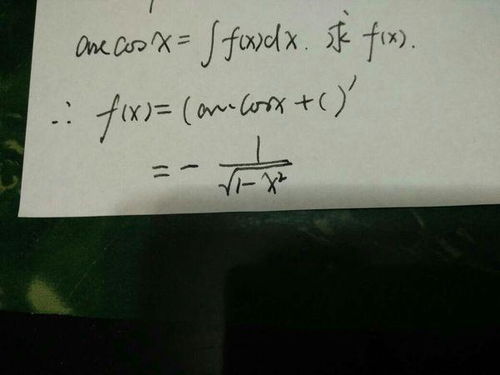 arc cos x = ∫ f(x) dx. 求 f(x).
∴ f(x) = (arc cosx + C)'
= - 1/√(1-x²)